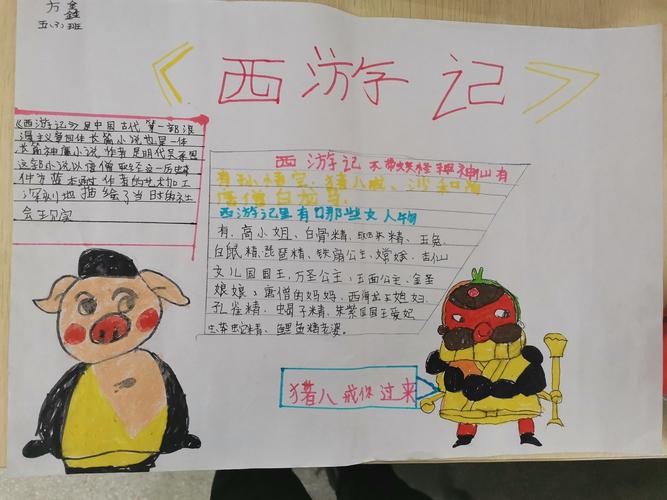 方鑫
五(3)班
《西游记》
《西游记》是中国古代第一部浪
漫主义章回体长篇小说也是一体
长篇神魔小说作者是明代吴承恩
这部小说以唐僧取经这一历史事
件为蓝本 作者的艺术加工
深刻地描绘了当时的社
会主见实
西游记不带妖怪神仙有
有孙悟空、猪八戒、沙和尚
唐僧白龙马、
西游记里有口那些女人物
有、高小姐、白骨精、蜘蛛精、玉兔、
白鼠精、琵琶精、铁扇公主、嫦娥、吉仙
女儿国国王、万圣公主、玉面公主、金圣
娘娘、唐僧的妈妈、西海龙王媳妇
孔雀精、蝎子精、朱紫国国王爱妃
精、鲤鱼精老婆。
猪八戒你过来